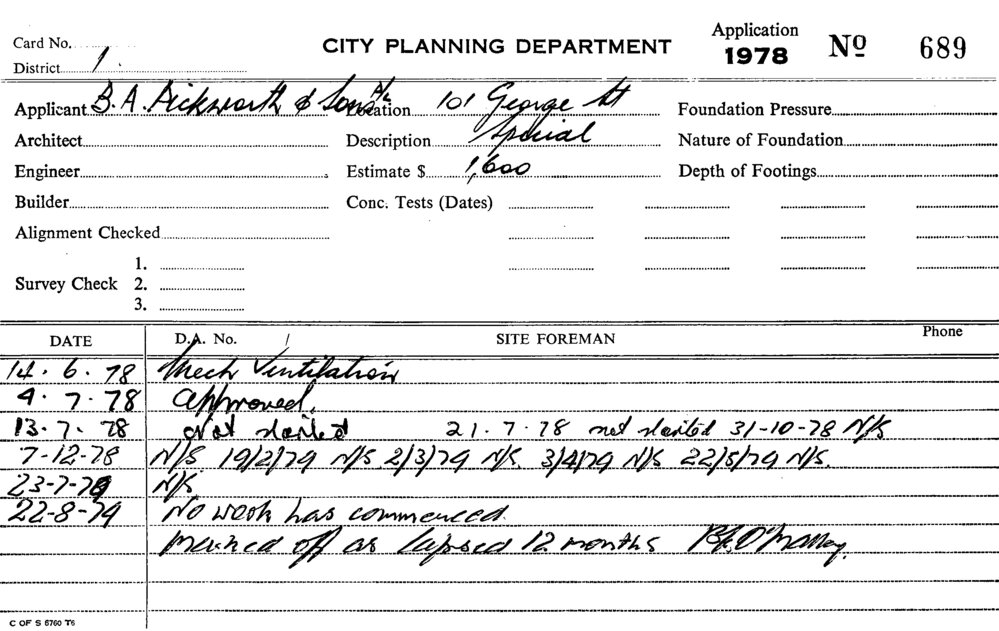 Card No.
CITY PLANNING DEPARTMENT
Application 1978 No 689
District 1.
Applicant B. A. Pickworth & Sons P/L Location 101 George St Foundation Pressure
Architect Description Special Nature of Foundation
Engineer Estimate $ 1,600 Depth of Footings
Builder Conc. Tests (Dates)
Alignment Checked
1.
Survey Check 2.
3.
DATE D.A. No. / SITE FOREMAN Phone
14. 6. 78 Mech Ventilation
4. 7. 78 Approved.
13. 7. 78 Not started 21. 7. 78 not started 31-10-78 N/S
7-12-78 N/S 19/2/79 N/S 2/3/79 N/S. 3/4/79 N/S 22/5/79 N/S.
23-7-79 N/S
22-8-79 No work has commenced.
Marked off as lapsed 12 months
C OF S 6760 T6